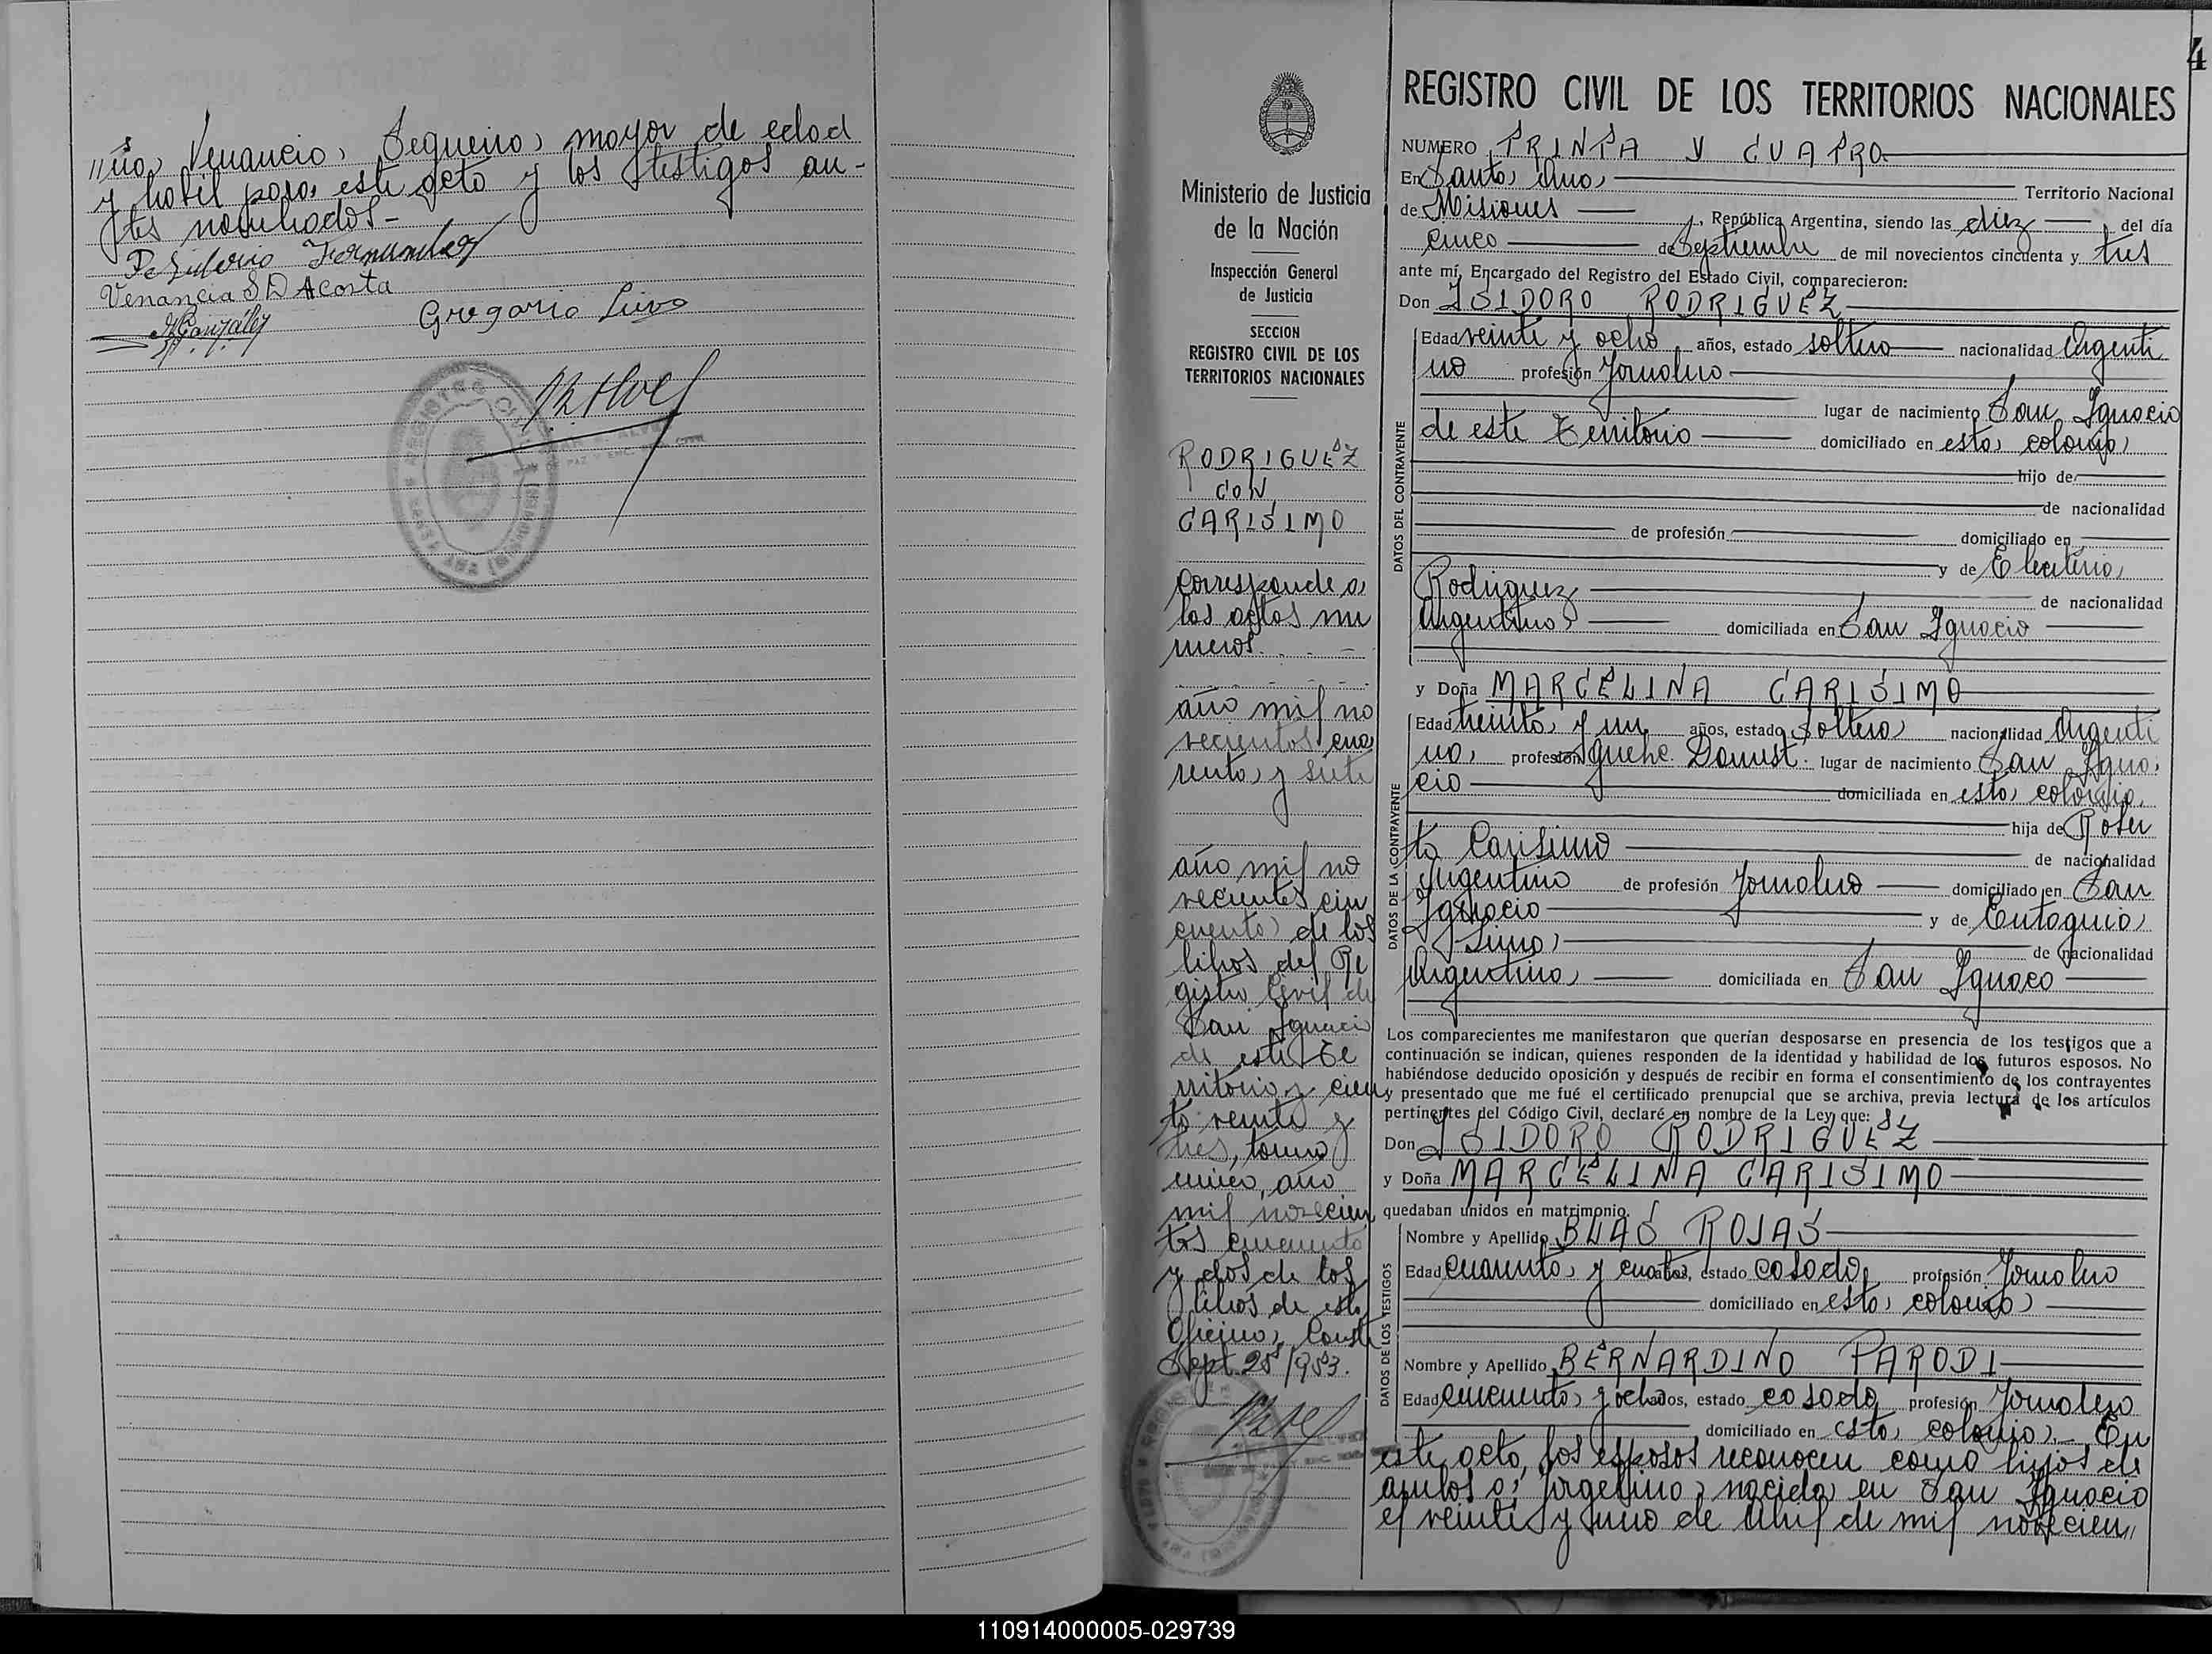 "ña, Venancia, Sequeira, mayor de edad
y habil para, este acto y los testigos an-
tes nombrados-
Venancia S D Acosta
Gregorio
González
4
Ministerio de Justicia
de la Nación
Inspección General
de Justicia
SECCION
REGISTRO CIVIL DE LOS
TERRITORIOS NACIONALES
RODRIGUEZ
CON
CARISIMO
Corresponde a,
las actas nu
meros. . . -
año mil no
vecientos cua,
renta, y siete
año mil no
vecientos cin
cuenta, de los
libros del Re
gistro Civil de
San Ignacio
de este Te
rritorio y cien
to veinte y
tres, tomo
unico, año
mil novecien
tos cincuenta
y dos de los
libros de esta
Oficina, Conste
Sept. 25/953.
REGISTRO CIVIL DE LOS TERRITORIOS NACIONALES
NUMERO TRINTA Y CUATRO
En Santa, Ana, Territorio Nacional
de Misiones, República Argentina, siendo las diez, del día
cinco de Septiembre de mil novecientos cincuenta y tres
ante mí, Encargado del Registro del Estado Civil, comparecieron:
Don ISIDORO RODRIGUEZ
DATOS DEL CONTRAYENTE
Edad veinte y ocho años, estado soltero nacionalidad Argenti
no profesión Jornalero
lugar de nacimiento San Ignacio
de este Territorio domiciliado en esta, colonia,
hijo de
de nacionalidad
de profesión domiciliado en
y de Eleuteria,
Rodriguez de nacionalidad
Argentina, domiciliada en San Ignacio
y Doña MARCELINA CARISIMO
DATOS DE LA CONTRAYENTE
Edad treinta, y un años, estado Soltera, nacionalidad Argenti
na, profesión Quehc. Domest. lugar de nacimiento San Igna,
cio domiciliada en esta, colonia,
hija de Rosen
to Carisimo de nacionalidad
Argentino de profesión Jornalero domiciliado en San
Ignacio y de Eutaquia,
de nacionalidad
Argentina, domiciliada en San Ignaco
Los comparecientes me manifestaron que querían desposarse en presencia de los testigos que a
continuación se indican, quienes responden de la identidad y habilidad de los futuros esposos. No
habiéndose deducido oposición y después de recibir en forma el consentimiento de los contrayentes
y presentado que me fué el certificado prenupcial que se archiva, previa lectura de los artículos
pertinentes del Código Civil, declaré en nombre de la Ley que:
Don ISIDORO RODRIGUEZ
y Doña MARCELINA CARISIMO
quedaban unidos en matrimonio.
DATOS DE LOS TESTIGOS
Nombre y Apellido BLAS ROJAS
Edad cuarenta, y cuatro años, estado casado, profesión Jornalero
domiciliado en esta, colonia,
Nombre y Apellido BERNARDINO PARODI
Edad cincuenta, y ocho años, estado casado profesión Jornalero
domiciliado en esta, colonia,- En
este acto, los esposos reconocen como hijos de
ambos a, nacida, en San Ignacio
el veinte y uno de Abril de mil novecien"
110914000005-029739